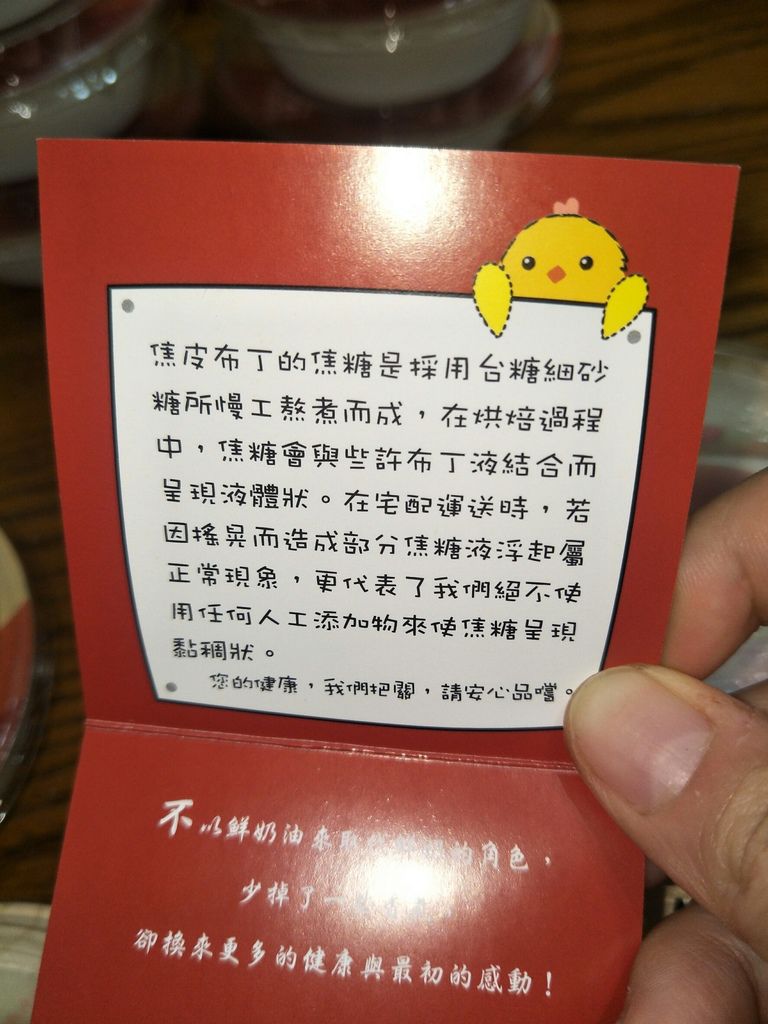 焦皮布丁的焦糖是採用台糖細砂
糖所慢工熬煮而成，在烘焙過程
中，焦糖會與些許布丁液結合而
呈現液體狀。在宅配運送時，若
因搖晃而造成部分焦糖液浮起屬
正常現象，更代表了我們絕不使
用任何人工添加物來使焦糖呈現
黏稠狀。
您的健康，我們把關，請安心品嚐。
不以鮮奶油來取的角色，
少掉了一
卻換來更多的健康與最初的感動！